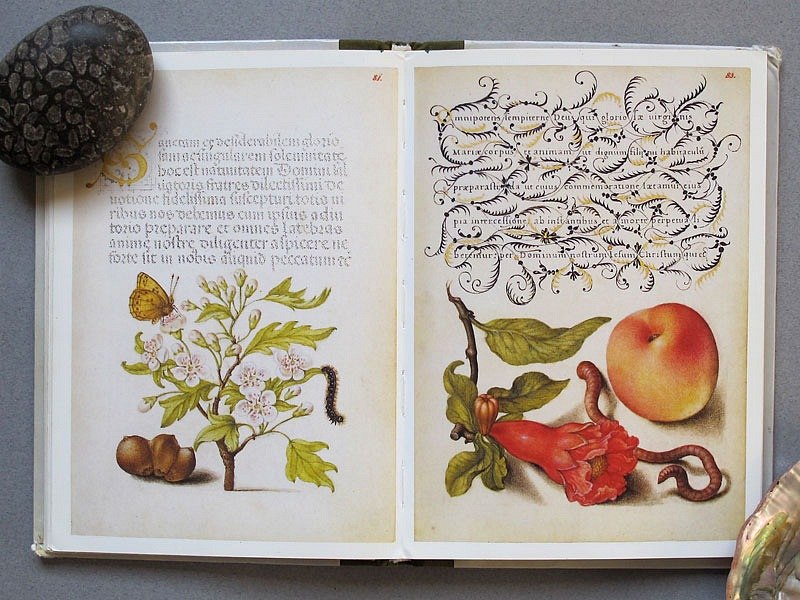 81.
Sanctam et desiderabilem glorio
sam ac singularem solennitate
hoc est nativitatem Domini sal
vatoris fratres dilectissimi de
votione fidelissima suscepturi totis vi
ribus nos debemus cum ipsius adiu
torio preparare et omnes latebras
anime nostre diligenter aspicere ne
forte sit in nobis aliquid peccatum et
83.
mnipotens sempiterne Deus qui gloriosæ virginis
Mariæ corpus et animam ut dignum filij tui habitaculū
præparasti da ut cuius commemoratione lætamur eius
pia intercessione ab instantibus et a morte perpetua li
beremur: per Dominum nostrum Iesum Christum qui et